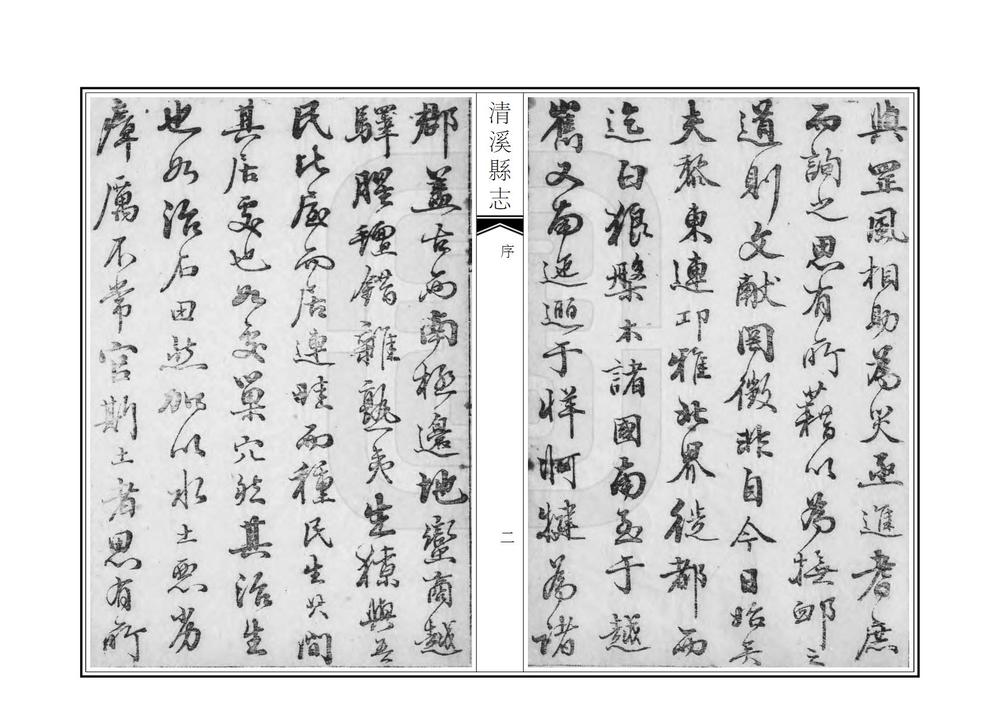 與罡風相助為災亟進耆庶
而詢之思有所藉以為撫卹之
道則文獻罔徵非自今日始矣
夫黎東連邛雅北界徙都西
迄白狼槃木諸國南至于越
嶲又南迤𨓦于牂牁犍為諸
清溪縣志
序
二
郡蓋古西南極邊地蠻商越
驛臊羶錯雜熟夷生獠與吾
民比屋而居連畦而種民生其間
其居處也如處巢穴然其治生
也如治石田然加以水土惡劣
瘴厲不常官斯土者思有所